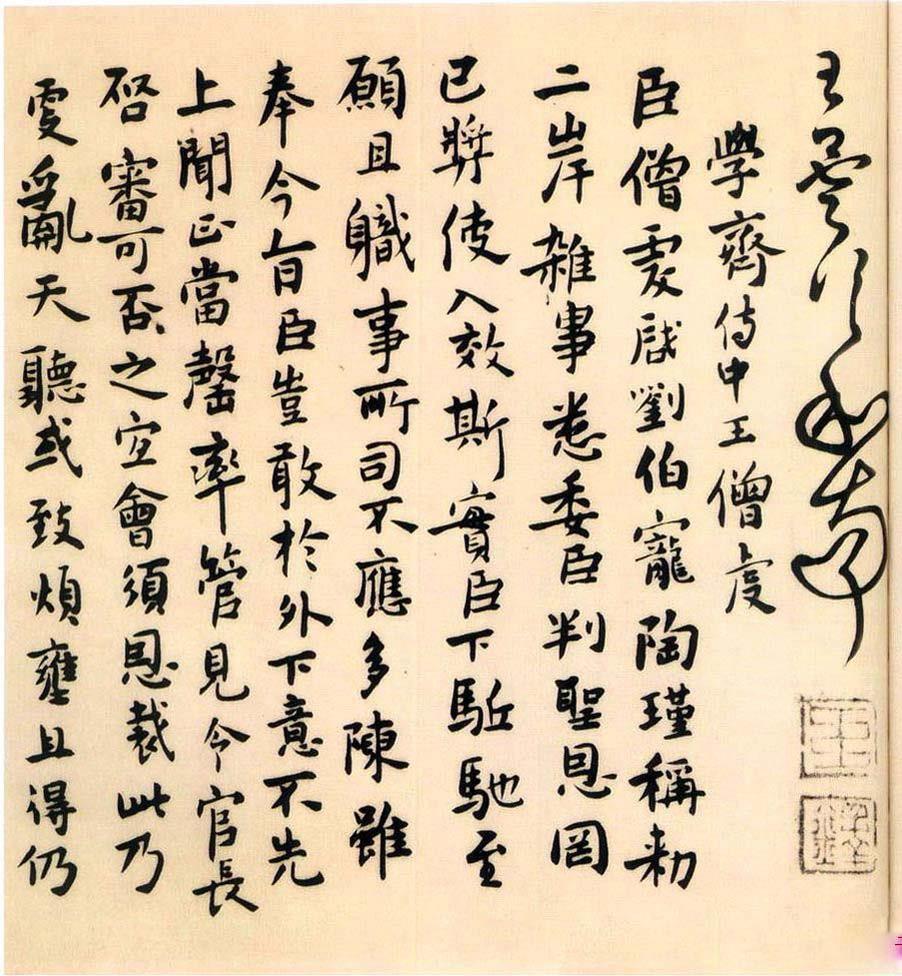 王和南
學齊侍中王僧虔
臣僧虔啟劉伯寵陶瑾稱勑
二岸雜事悉委臣判聖恩罔
已弊使入效斯實臣下駈馳至
願且職事所司不應多陳雖
奉今旨臣豈敢於外下意不先
上聞正當罄率管見令官長
啓審可否之宜會須恩裁此乃
更亂天聽或致煩壅且得仍